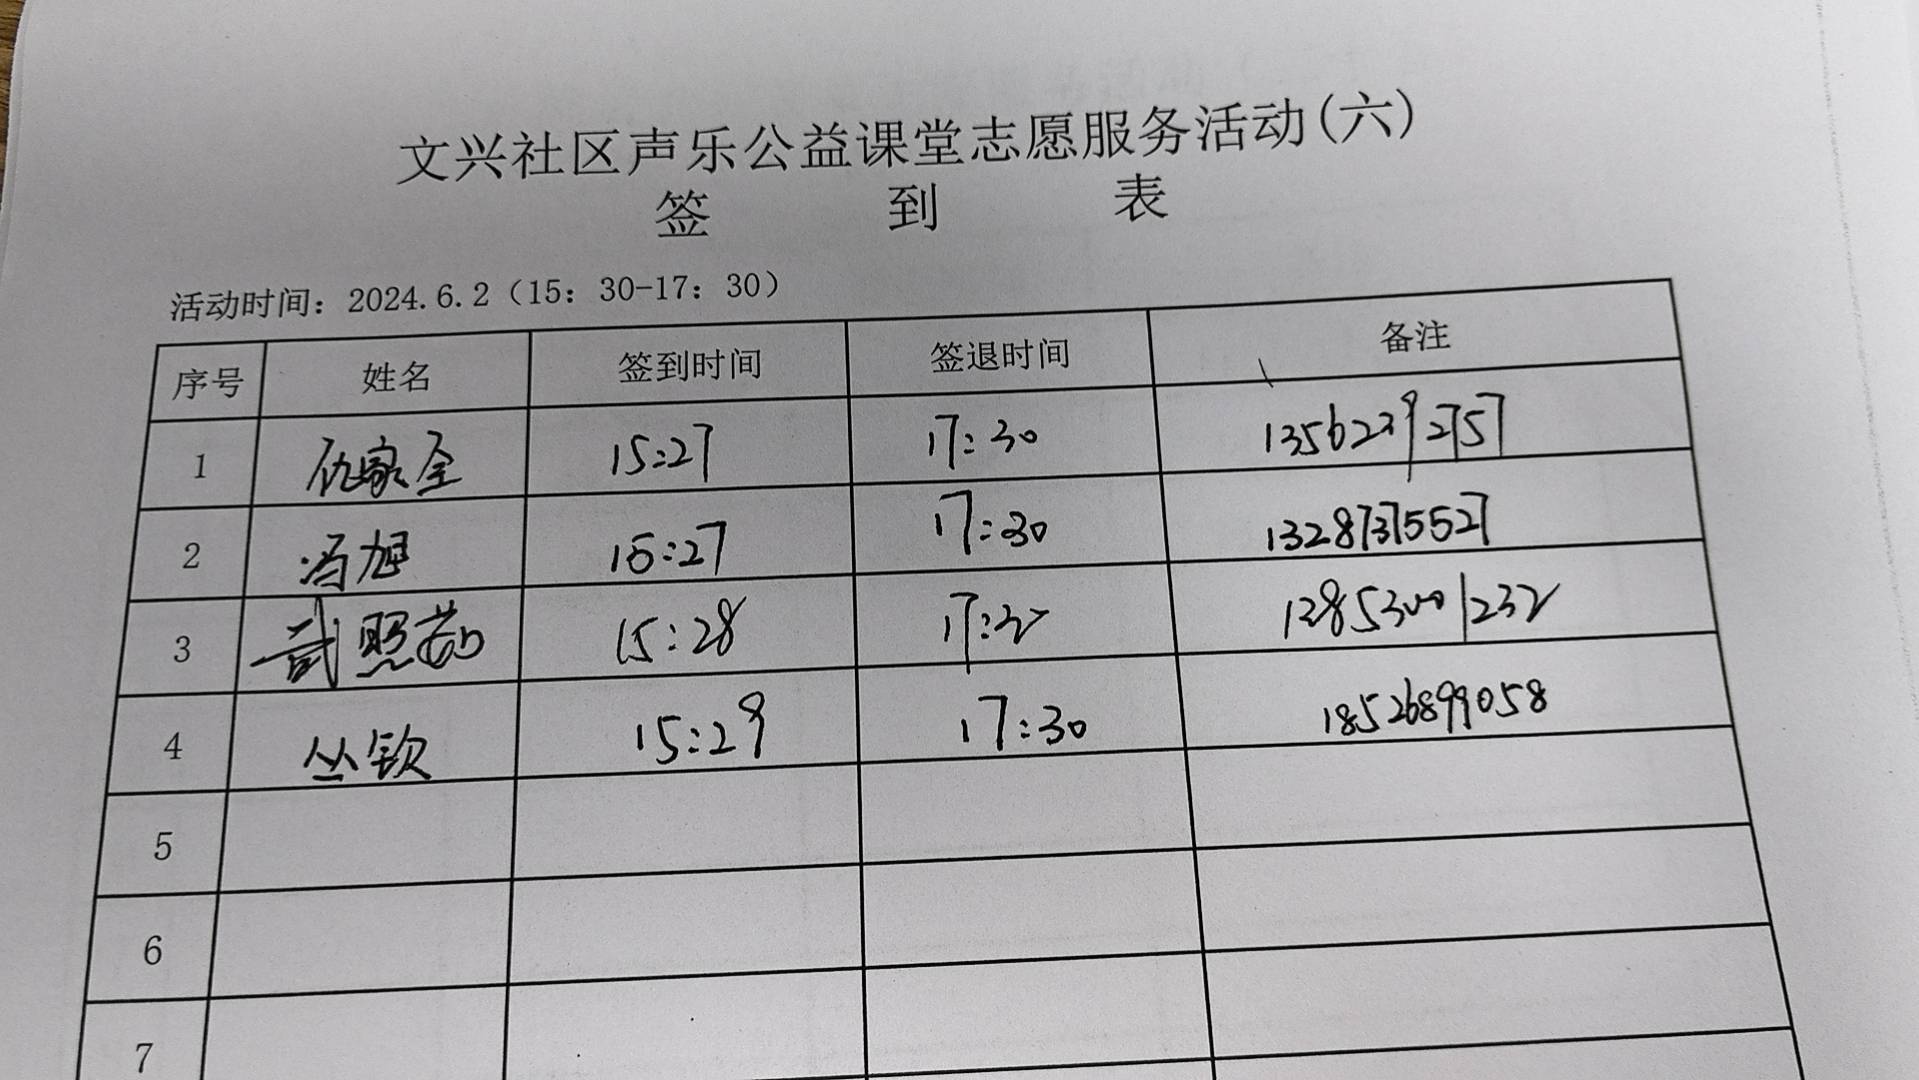 文兴社区声乐公益课堂志愿服务活动(六)
签到表
活动时间：2024.6.2（15：30-17：30）
序号 姓名 签到时间 签退时间 备注
1 仇家全 15:27 17:30 13562292757
2 冯旭 15:27 17:30 13287375527
3 武照茹 15:28 17:30
4 丛钦 15:29 17:30 18526899058
5
6
7